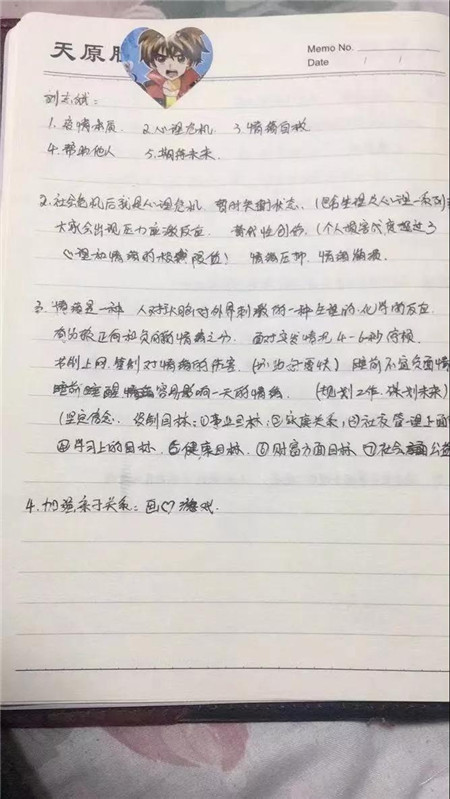 天原股
Memo No.
Date / /
刘志绒:
1. 疫情本质. 2 心理危机 3. 情绪自救
4. 帮助他人 5. 期待未来.
2. 社会危机后就是心理危机. 暂时失衡状态. (包含生理及心理一系列
大家会出现压力应激反应. 替代性创伤. (个人损害代度超过了
心理和情绪的极限) 情绪压抑. 情绪崩溃.
3. 情绪是一种 人对外界刺激的一种生理的.化学的反应.
有正向和负向情绪之分. 面对突发情况 4-6秒
上网. 对情绪的伤害. 睡前不宜负面情
睡前 睡醒情绪容易影响一天的情绪 (规划工作. 谋划未来)
(坚定信念. 目标: ①事业目标. ②家庭关系. ③社友管理上面
④学习上的目标. ⑤健康目标. ⑥财富方面目标 ⑦社会公益
4. 加强亲子关系: 画心 游戏.